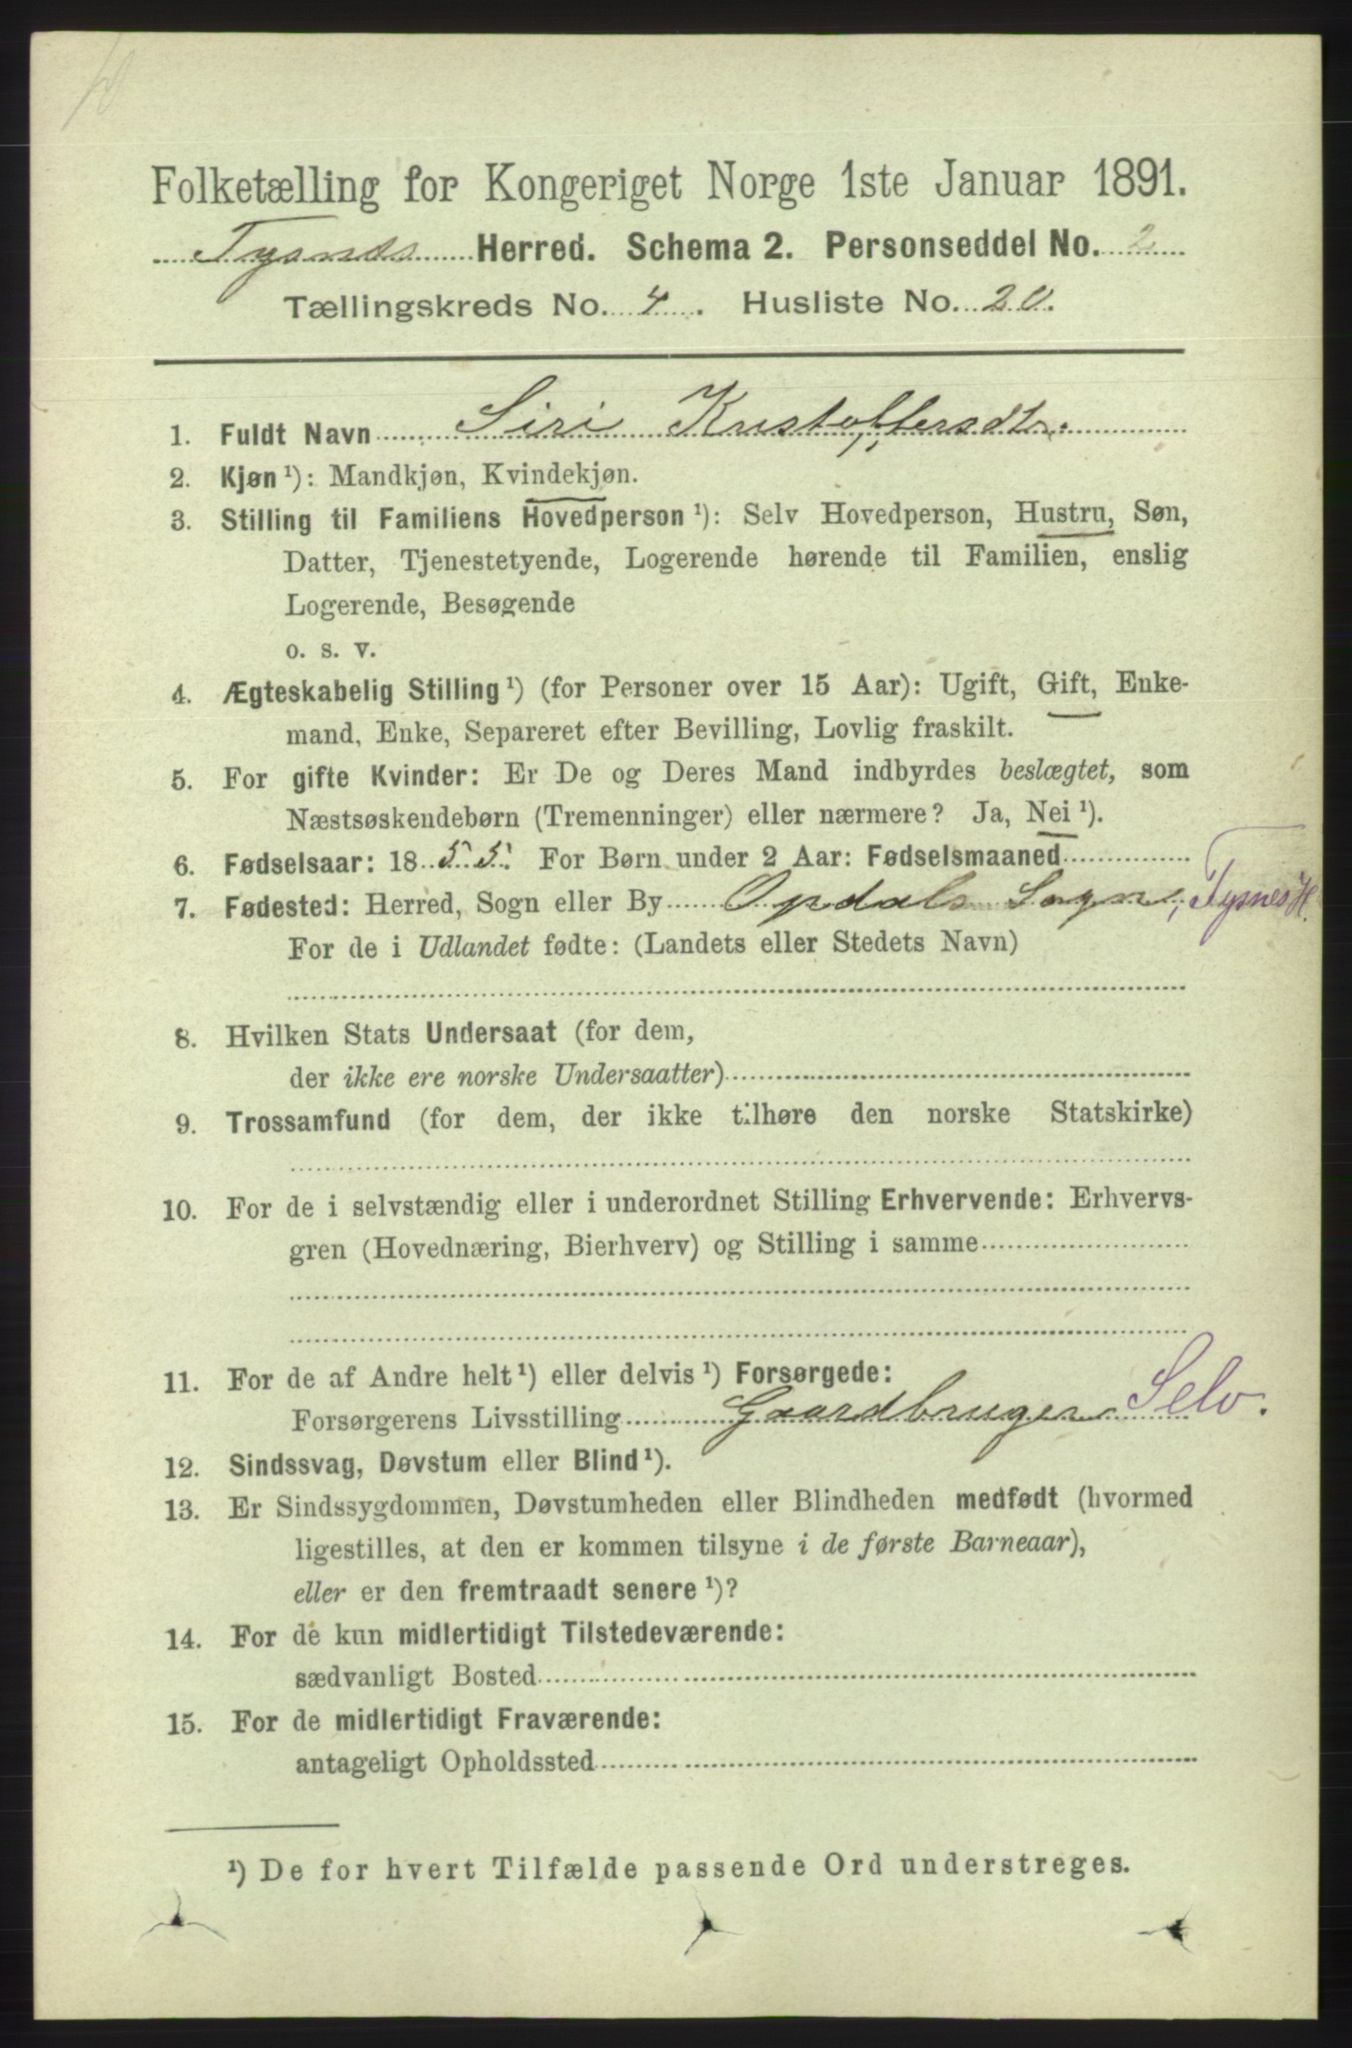 Folketælling for Kongeriget Norge 1ste Januar 1891.
Tysnes Herred. Schema 2. Personseddel No. 2
Tællingskreds No. 4. Husliste No. 20.
1. Fuldt Navn Siri Kristoffersdtr.
2. Kjøn ¹): Mandkjøn, Kvindekjøn.
3. Stilling til Familiens Hovedperson ¹): Selv Hovedperson, Hustru, Søn,
Datter, Tjenestetyende, Logerende hørende til Familien, enslig
Logerende, Besøgende
o. s. v.
4. Ægteskabelig Stilling ¹) (for Personer over 15 Aar): Ugift, Gift, Enke-
mand, Enke, Separeret efter Bevilling, Lovlig fraskilt.
5. For gifte Kvinder: Er De og Deres Mand indbyrdes beslægtet, som
Næstsøskendebørn (Tremenninger) eller nærmere? Ja, Nei ¹).
6. Fødselsaar: 1855. For Børn under 2 Aar: Fødselsmaaned
7. Fødested: Herred, Sogn eller By Opdals Sogn, Tysnes H.
For de i Udlandet fødte: (Landets eller Stedets Navn)
8. Hvilken Stats Undersaat (for dem,
der ikke ere norske Undersaatter)
9. Trossamfund (for dem, der ikke tilhøre den norske Statskirke)
10. For de i selvstændig eller i underordnet Stilling Erhvervende: Erhvervs-
gren (Hovednæring, Bierhverv) og Stilling i samme
11. For de af Andre helt ¹) eller delvis ¹) Forsørgede:
Forsørgerens Livsstilling Gaardbruger Selv.
12. Sindssvag, Døvstum eller Blind ¹).
13. Er Sindssygdommen, Døvstumheden eller Blindheden medfødt (hvormed
ligestilles, at den er kommen tilsyne i de første Barneaar),
eller er den fremtraadt senere ¹)?
14. For de kun midlertidigt Tilstedeværende:
sædvanligt Bosted
15. For de midlertidigt Fraværende:
antageligt Opholdssted
¹) De for hvert Tilfælde passende Ord understreges.